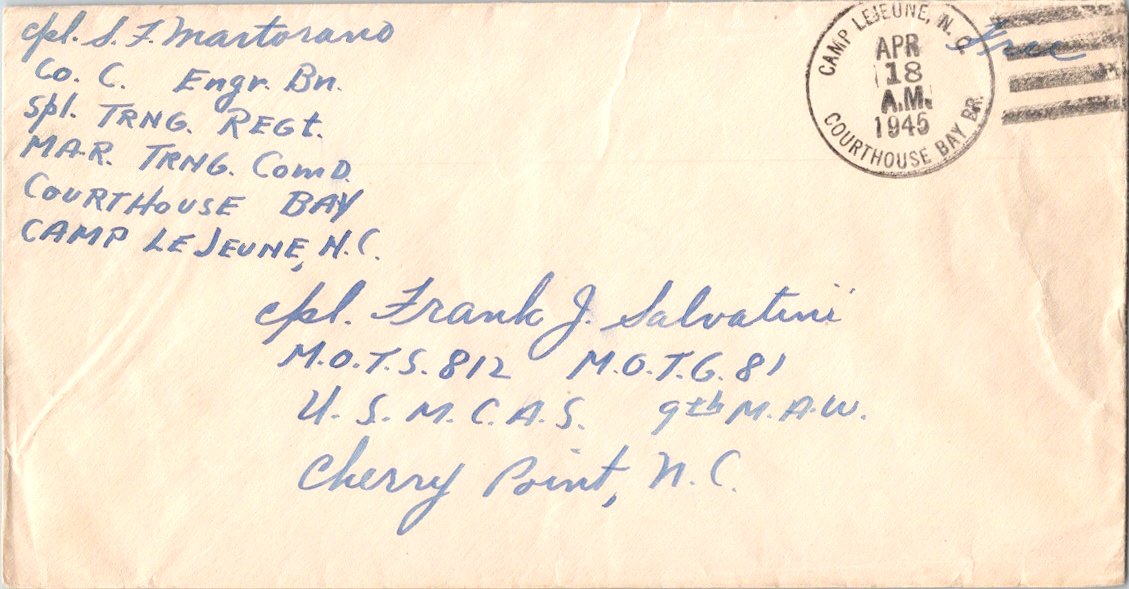 Cpl. S. F. Martorano
Co. C. Engr. Bn.
Spl. TRNG. REGt.
MAR. TRNG. ComD.
COURTHOUSE BAY
CAMP LEJEUNE, N.C.
CAMP LEJEUNE, N. C.
APR
18
A.M.
1945
COURTHOUSE BAY BR.
Free
Cpl. Frank J. Salvatini
M.O.T.S. 812 M.O.T.G. 81
U. S. M. C. A. S. 9th M. A. W.
Cherry Point, N. C.